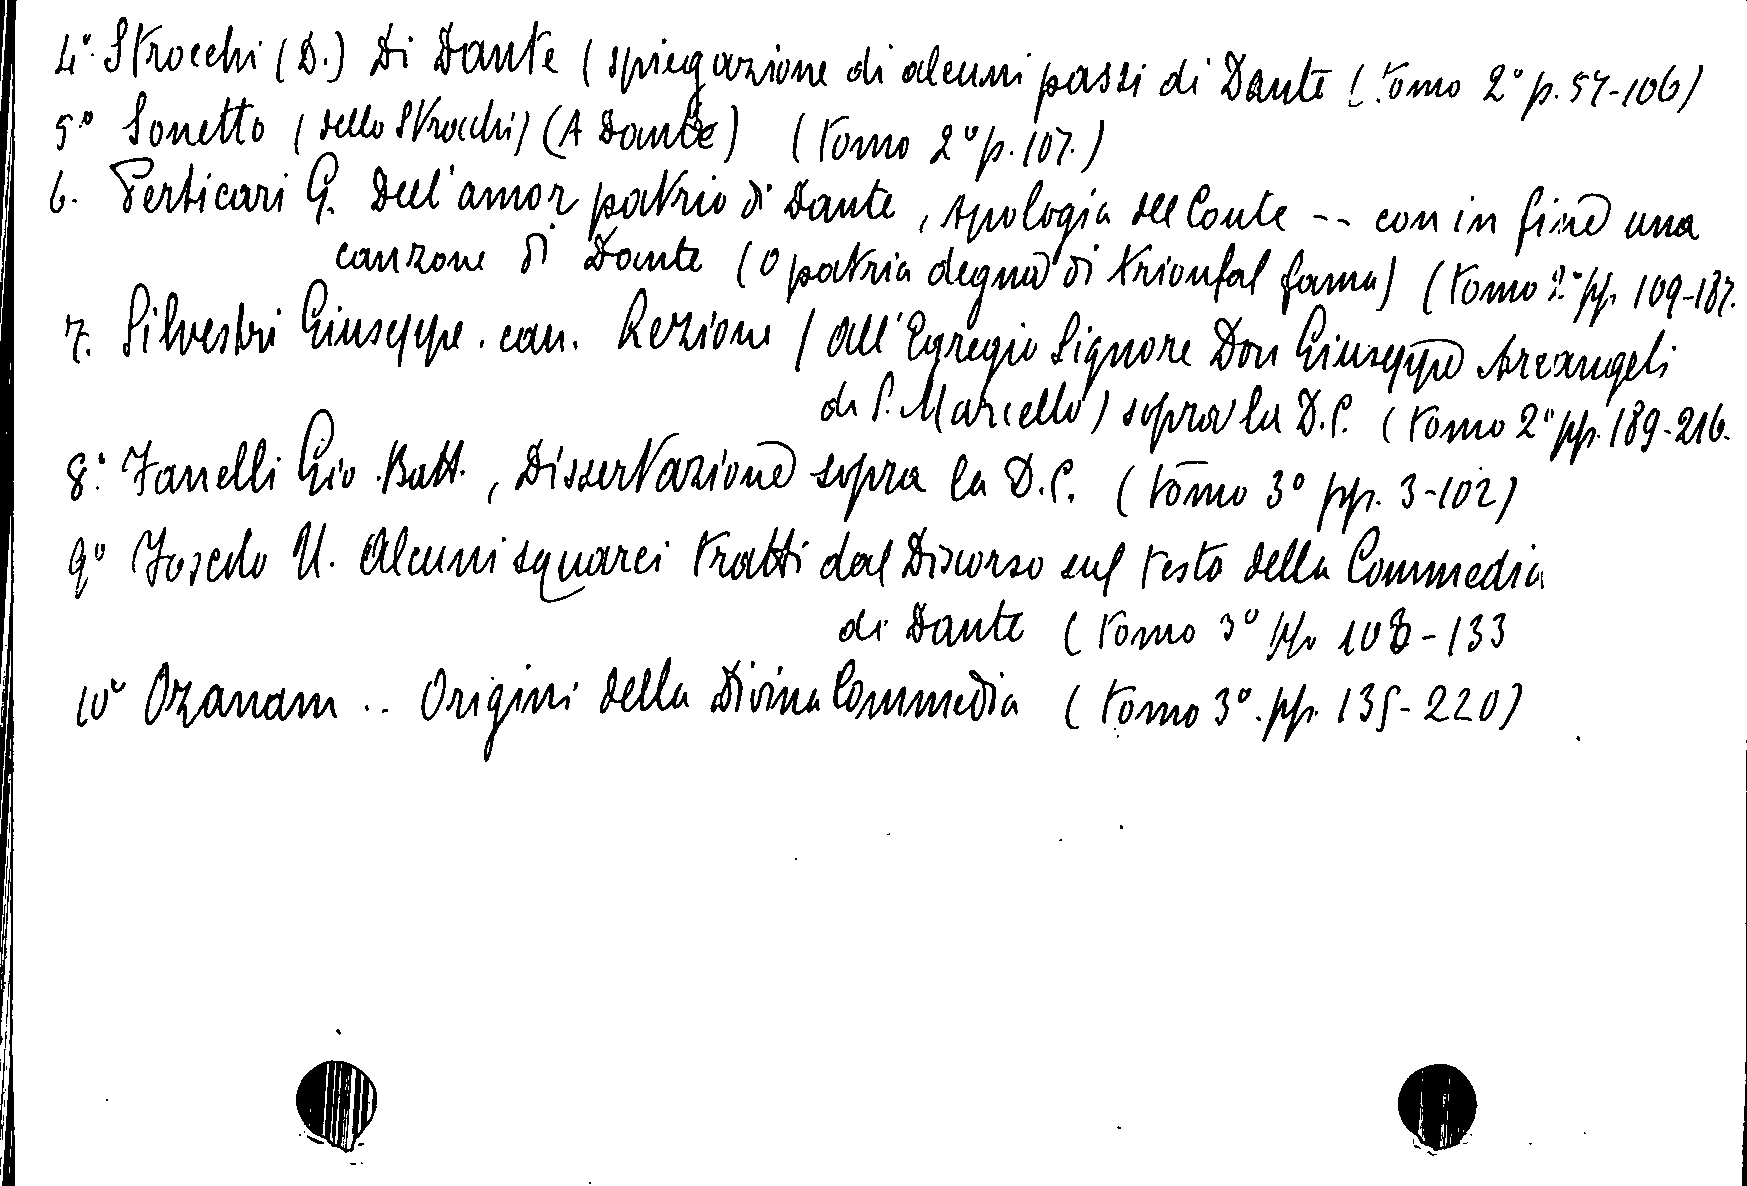 4°. Strocchi (D.) Di Dante (spiegazione di alcuni passi di Dante (tomo 2° p. 57-106)
5° Sonetto (dello Strocchi) (A Dante) (tomo 2° p. 107.)
6. Perticari G. Dell'amor patrio di Dante, Apologia del Conte -- con in fine una
canzone di Dante (O patria degna di trionfal fama) (tomo 2° pp. 109-187.
7. Silvestri Giuseppe. can. Lezione (all'Egregio Signore Don Giuseppe Arcangeli
di S. Marcello) sopra la D.C. (tomo 2° pp. 189-216.
8° Fanelli Gio. Batt., Dissertazione sopra la D.C. (tomo 3° pp. 3-102)
9° Foscolo U. Alcuni squarci tratti dal Discorso sul testo della Commedia
di Dante (tomo 3° pp. 103-133
10° Ozanam .. Origini della Divina Commedia (tomo 3°. pp. 135-220)